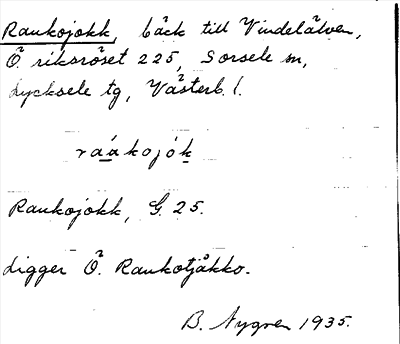 Raukojokk, bäck till Vindelälven,
Ö riksröset 225, Sorsele sn,
Lycksele tg, Västerb. l.
raákojók
Raukojokk, G. 25.
Ligger Ö. Raukotjåkko.
B. Nygren 1935.